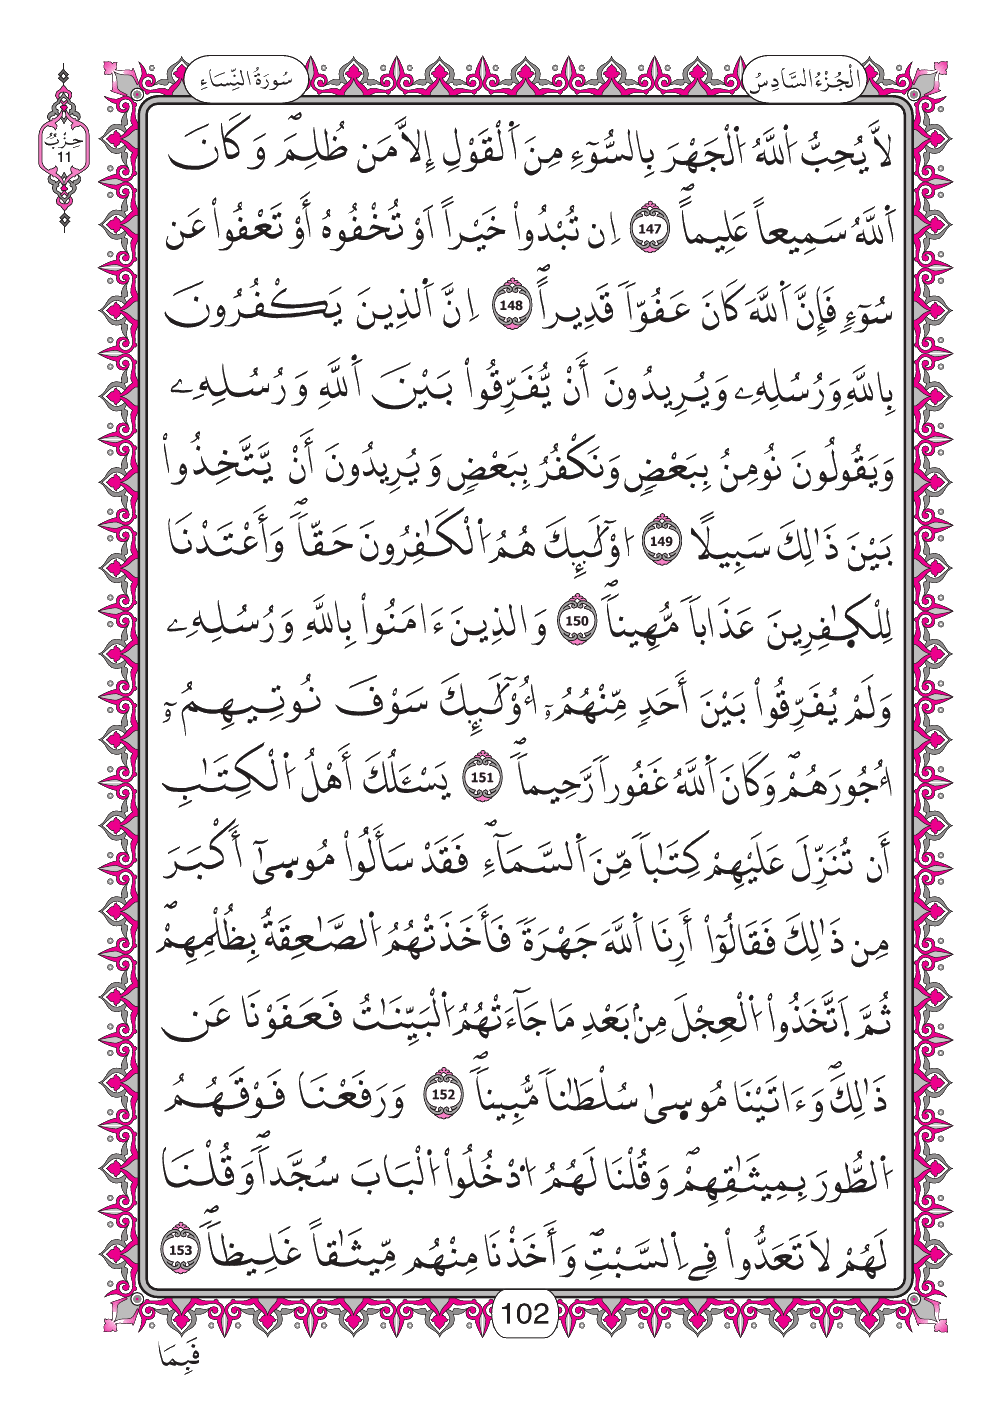 سُورَةُ النِّسَاءِ
الْجُزْءُ السَّادِسُ
حِزْبٌ
11
لَّا يُحِبُّ اُ۬للَّهُ اُ۬لْجَهْرَ بِالسُّوٓءِ مِنَ اَ۬لْقَوْلِ إِلَّا مَن ظُلِمَۖ وَكَانَ
اَ۬للَّهُ سَمِيعاً عَلِيماًۖ 147 اِن تُبْدُواْ خَيْراً اَوْ تُخْفُوهُ أَوْ تَعْفُواْ عَن
سُوٓءٖ فَإِنَّ اَ۬للَّهَ كَانَ عَفُوّاٗ قَدِيراًۖ 148 اِنَّ اَ۬لذِينَ يَكْفُرُونَ
بِاللَّهِ وَرُسُلِهِۦ وَيُرِيدُونَ أَنْ يُّفَرِّقُواْ بَيْنَ اَ۬للَّهِ وَرُسُلِهِۦ
وَيَقُولُونَ نُومِنُ بِبَعْضٖ وَنَكْفُرُ بِبَعْضٖ وَيُرِيدُونَ أَنْ يَّتَّخِذُواْ
بَيْنَ ذَٰلِكَ سَبِيلًا 149 اوْلَٰٓئِكَ هُمُ اُ۬لْكَٰفِرُونَ حَقّاٗۖ وَأَعْتَدْنَا
لِلْكٰ۪فِرِينَ عَذَاباٗ مُّهِيناٗۖ 150 وَالذِينَ ءَامَنُواْ بِاللَّهِ وَرُسُلِهِۦ
وَلَمْ يُفَرِّقُواْ بَيْنَ أَحَدٖ مِّنْهُمُۥٓ أُوْلَٰٓئِكَ سَوْفَ نُوتِيهِمُۥٓ
أُجُورَهُمْۖ وَكَانَ اَ۬للَّهُ غَفُوراٗ رَّحِيماٗۖ 151 يَسْـَٔلُكَ أَهْلُ اُ۬لْكِتَٰبِ
أَن تُنَزِّلَ عَلَيْهِمْ كِتَٰباٗ مِّنَ اَ۬لسَّمَآءِۖ فَقَدْ سَأَلُواْ مُوس۪ىٰٓ أَكْبَرَ
مِن ذَٰلِكَ فَقَالُوٓاْ أَرِنَا اَ۬للَّهَ جَهْرَةٗ فَأَخَذَتْهُمُ اُ۬لصَّٰعِقَةُ بِظُلْمِهِمْۖ
ثُمَّ اَ۪تَّخَذُواْ اُ۬لْعِجْلَ مِنۢ بَعْدِ مَا جَآءَتْهُمُ اُ۬لْبَيِّنَٰتُ فَعَفَوْنَا عَن
ذَٰلِكَۖ وَءَاتَيْنَا مُوس۪ىٰ سُلْطَٰناٗ مُّبِيناٗۖ 152 وَرَفَعْنَا فَوْقَهُمُ
اُ۬لطُّورَ بِمِيثَٰقِهِمْۖ وَقُلْنَا لَهُمُ اُ۟دْخُلُواْ اُ۬لْبَابَ سُجَّداٗۖ وَقُلْنَا
لَهُمْ لَا تَعَدُّواْ فِے اِ۬لسَّبْتِۖ وَأَخَذْنَا مِنْهُم مِّيثَٰقاً غَلِيظاٗۖ 153
102
فَبِمَا